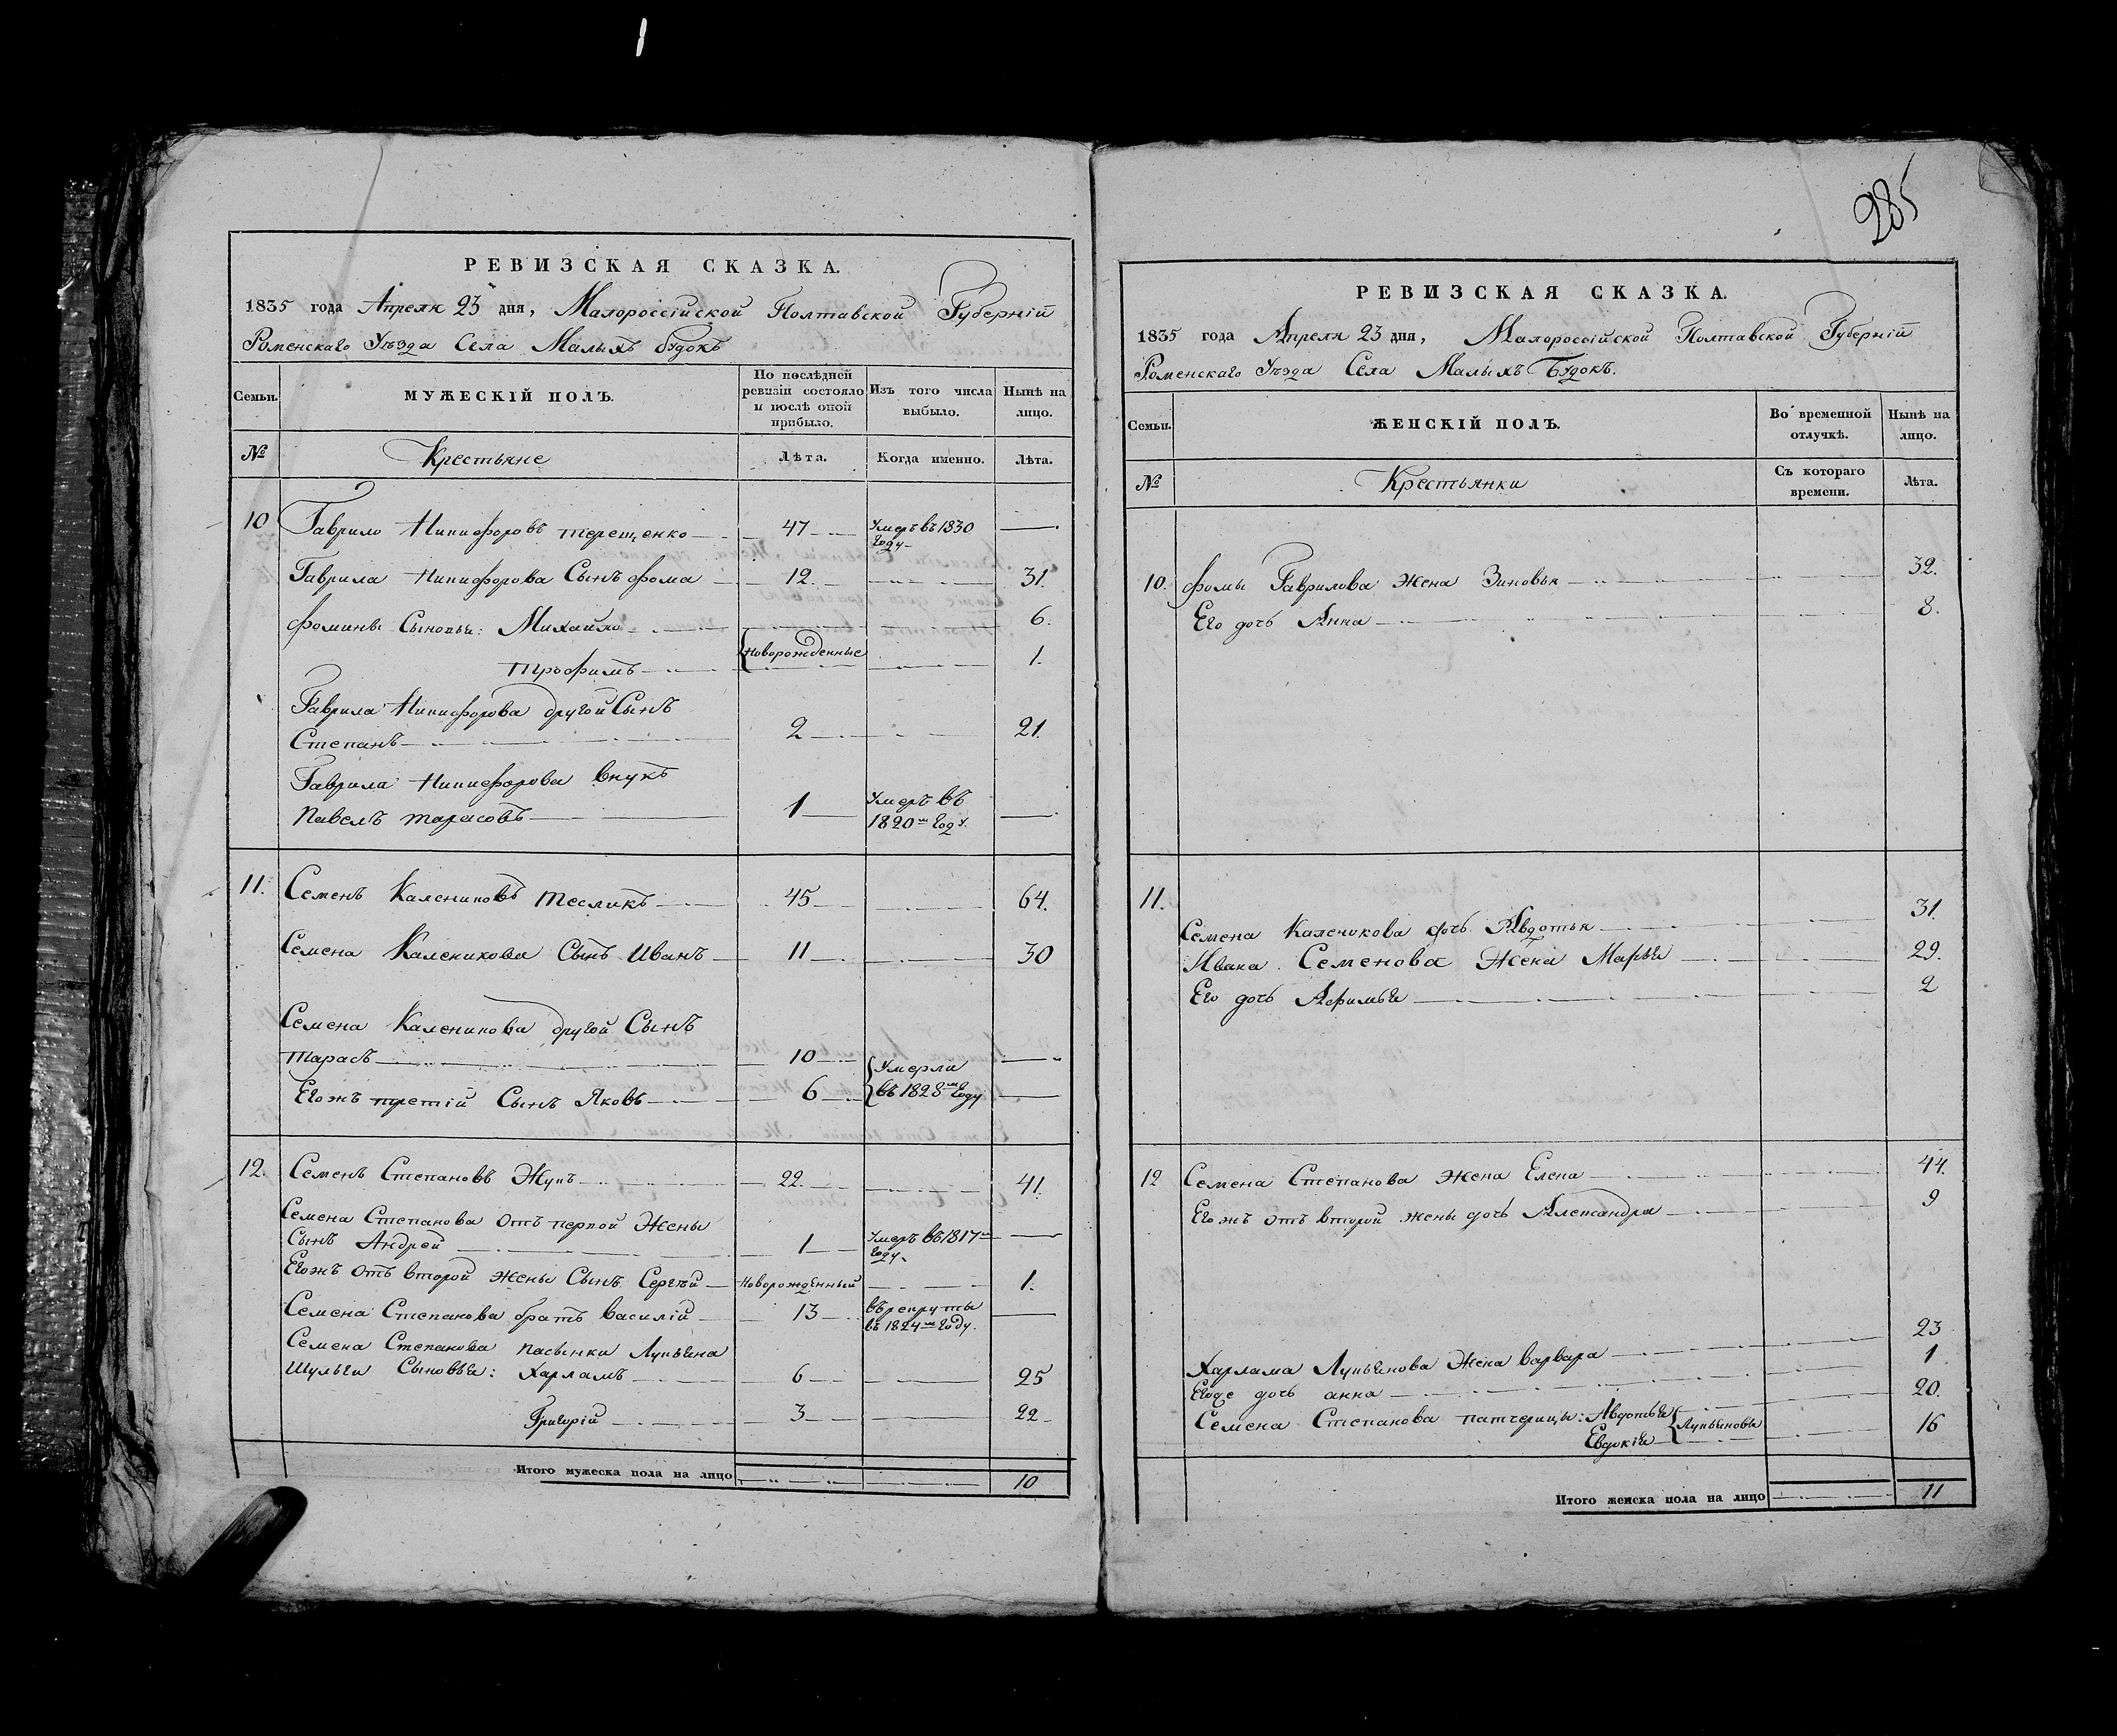 285
РЕВИЗСКАЯ СКАЗКА.
1835 года Апреля 23 дня, Малороссійской Полтавской Губерніи
Роменскаго Уѣзда Села Малыхъ будокъ
Семьи.
МУЖЕСКІЙ ПОЛЪ.
По послѣдней ревизіи состояло и послѣ оной прибыло.
Изъ того числа выбыло.
Нынѣ на лицо.
№ Крестьяне Лѣта. Когда именно. Лѣта.
10 Гаврило Никифоровъ терещенко 47 Умеръ въ 1830 году
Гаврила Никифорова Сынъ фома 12. 31.
фомины Сыновья: Михайло 6.
Новорожденные
трофимъ 1.
Гаврила Никифорова другой Сынъ
Степанъ 2 21.
Гаврила Никифорова внукъ
Павелъ тарасовъ 1 Умеръ въ 1820м году.
11. Семенъ Калениковъ тесликъ 45 64.
Семена Каленикова Сынъ Иванъ 11 30
Семена Каленикова другой Сынъ
тарасъ 10 Умерли
Егожъ третій Сынъ Яковъ 6 въ 1828м году
12. Семенъ Степановъ Жукъ 22. 41.
Семена Степанова отъ первой Жены
Сынъ Андрей 1 Умеръ въ 1817м году
Егожъ отъ второй жены Сынъ Сергѣй Новорожденный 1.
Семена Степанова братъ василій 13 въ рекруты въ 1824м году.
Семена Степанова пасынки Лукьяна
Шульги Сыновья: Харламъ 6 25
Григорій 3 22
Итого мужеска пола на лицо 10
РЕВИЗСКАЯ СКАЗКА.
1835 года Апреля 23 дня, Малороссійской Полтавской Губерніи
Роменскаго Уѣзда Села Малыхъ Будокъ.
Семьи.
ЖЕНСКІЙ ПОЛЪ.
Во временной отлучкѣ.
Нынѣ на лицо.
№ Крестьянки Съ котораго времени. Лѣта.
10. фомы Гаврилова жена Зиновья 32.
Его дочь Анна 8.
11. Семена Каленикова дочь Авдотья 31.
Ивана Семенова Жена Марья 29.
Его дочь Афимья 2
12 Семена Степанова жена Елена 44.
Егожъ отъ второй жены дочь Александра 9
Харлама Лукьянова Жена варвара 23
дочь анна 1
Семена Степанова патчерицы: Авдотья 20.
Лукьяновы
Евдокія 16
Итого женска пола на лицо 11